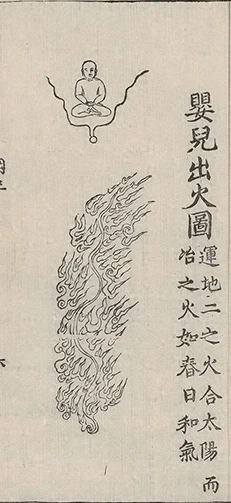 嬰兒出火圖
運地二之火合太陽而
冶之火如春日和氣